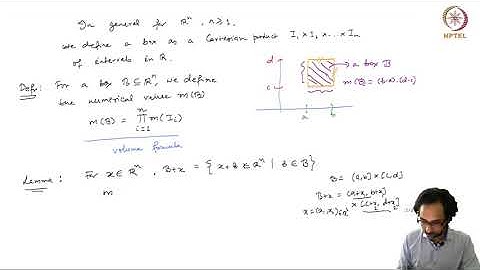 In general for ℝⁿ, n ≥ 1,
we define a box as a Cartesian product I₁ × I₂ × ... × Iₙ
of intervals in ℝ.
Defn: For a box B ⊆ ℝⁿ, we define
the numerical value m(B)
m(B) = ∏ᵢ₌₁ⁿ m(Iᵢ)
volume formula
d
c
a
b
→ a box B
m(B) = (b-a)·(d-c)
Lemma: For x ∈ ℝⁿ, B+x = {x+z ∈ ℝⁿ | z ∈ B}
m
B = [a,b] × [c,d]
B+x = [a+x₁, b+x₁]
× [c+x₂, d+x₂]
x = (x₁,x₂) ∈ ℝ²
NPTEL